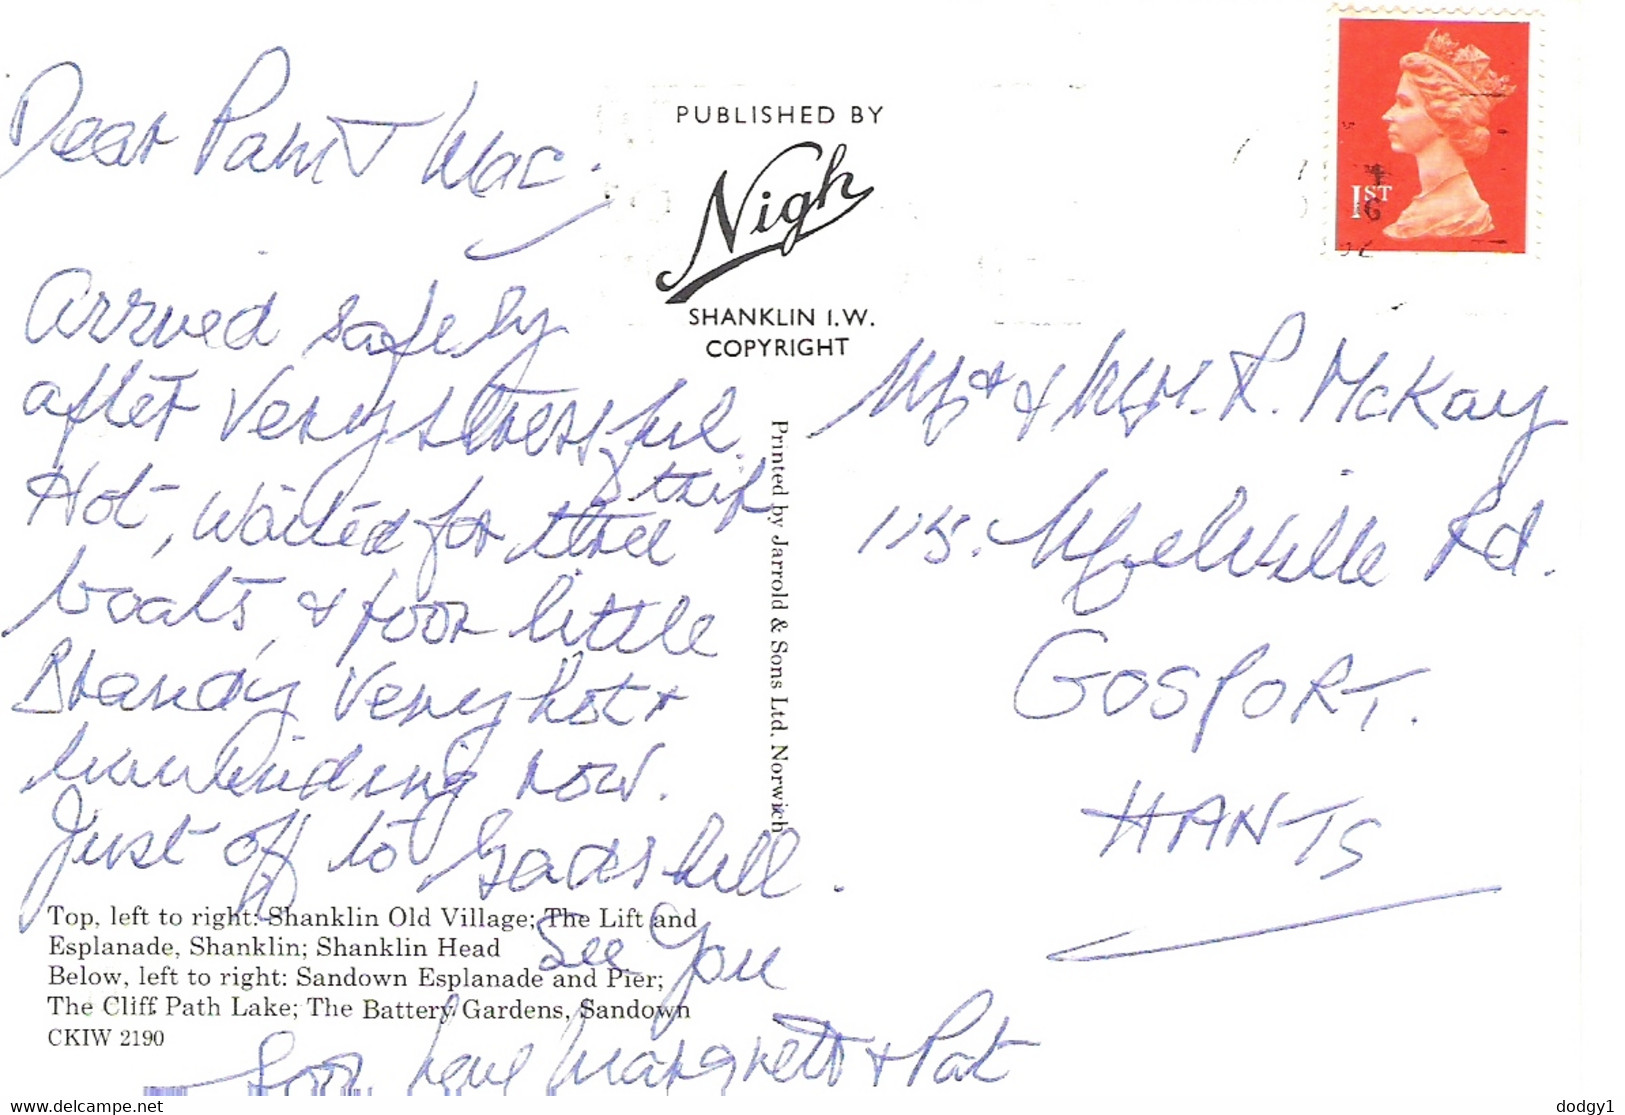 Dear Pam + Mac.
Arrived safely
after very stressful
trip
Hot, waited for three
boats, & poor little
Brandy very hot &
now.
Just off to Godshill.
See you
Soon love Margrett & Pat
Top, left to right: Shanklin Old Village; The Lift and
Esplanade, Shanklin; Shanklin Head
Below, left to right: Sandown Esplanade and Pier;
The Cliff Path Lake; The Battery Gardens, Sandown
CKIW 2190
PUBLISHED BY
Nigh
SHANKLIN I.W.
COPYRIGHT
Printed by Jarrold & Sons Ltd. Norwich
1ST
Mr & Mrs. R. McKay
115. Melville Rd.
GOSPORT.
HANTS
dodgy1
https://www.delcampe.net